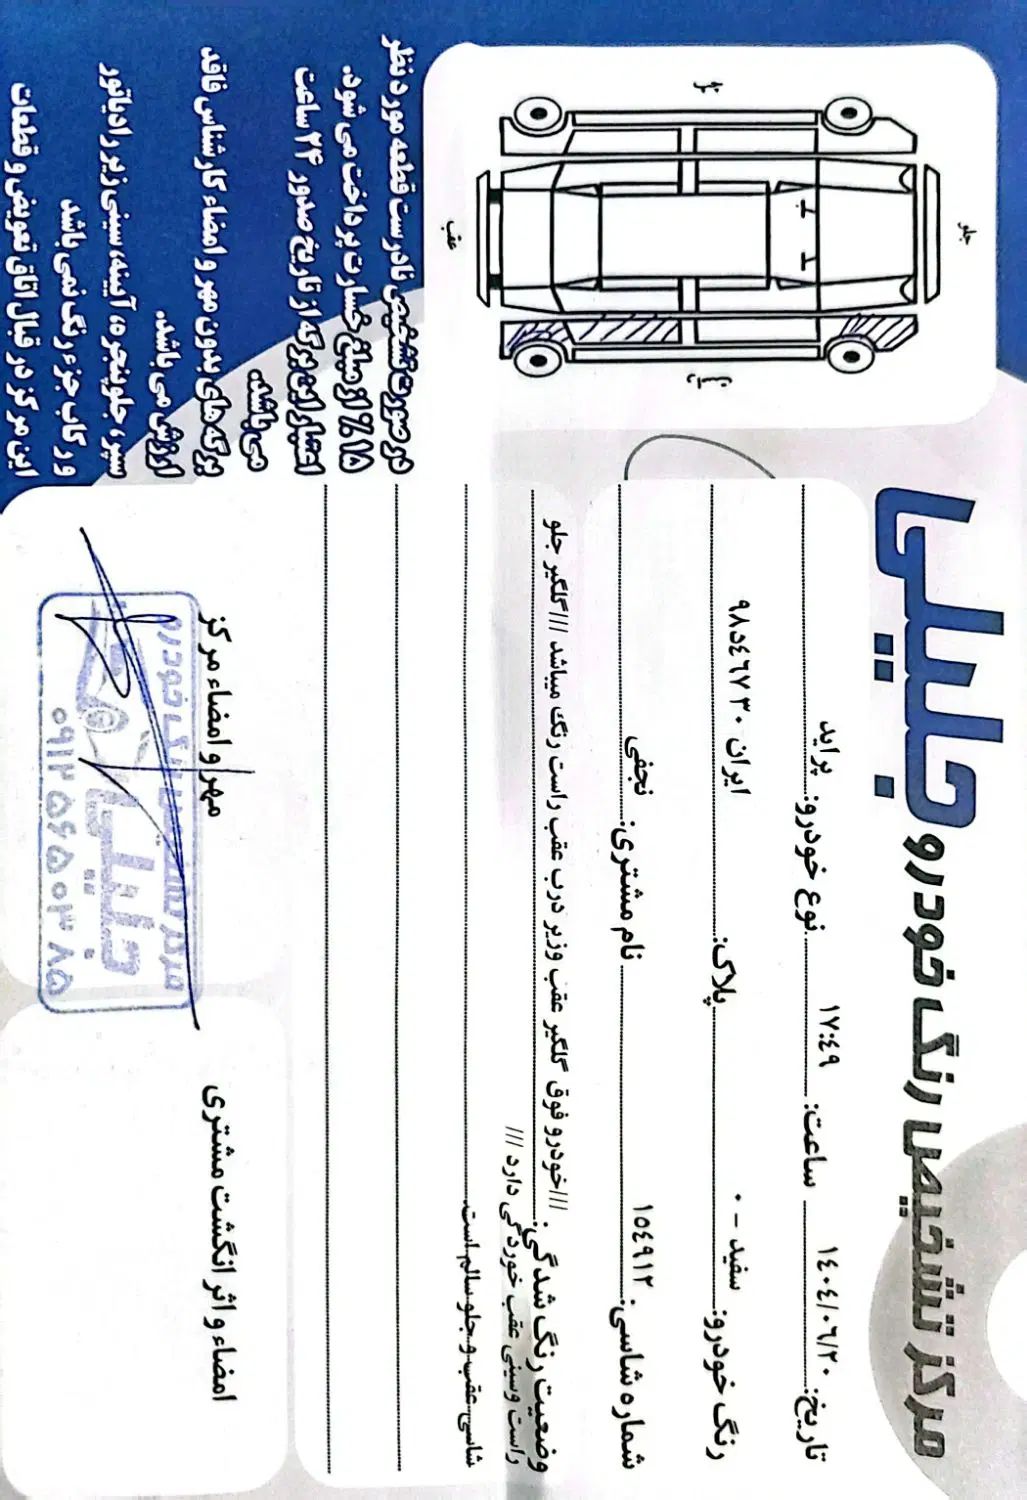 مرکز تشخیص رنگ خودرو جلیلیا
تاریخ: ١٤٠٤/٠٦/٢٠ ساعت: ١٧:٤٩ نوع خودرو: پراید
رنگ خودرو: سفید - ٠ پلاک: ایران ٣٠ ٤٦٧د٩٨
شماره شاسی: ١٥٤٩١٢ نام مشتری: نجفی
وضعیت رنگ شدگی: ///خودرو فوق گلگیر عقب وزیر درب عقب راست رنگ میباشد ///گلگیر جلو
راست وسینی عقب خوردگی دارد ///
شاسی عقب و جلو سالم است
امضاء و اثر انگشت مشتری
مهر و امضاء مرکز
مرکز تشخیص رنگ خودرو
جلیلیا
۰۹۱۲ ۵۶۵۰۳۸۵
جلو
عقب
در صورت تشخیص نادرست قطعه مورد نظر
۱۵% از مبلغ خسارت پرداخت می شود.
اعتبار این برگه از تاریخ صدور ۲۴ ساعت
می باشد.
برگه های بدون مهر و امضاء کارشناس فاقد
ارزش می باشد.
سپر، جلوپنجره، آیینه، سینی زیر رادیاتور
و رکاب جزء رنگ نمی باشد
این مرکز در قبال اتاق تعویض و قطعات